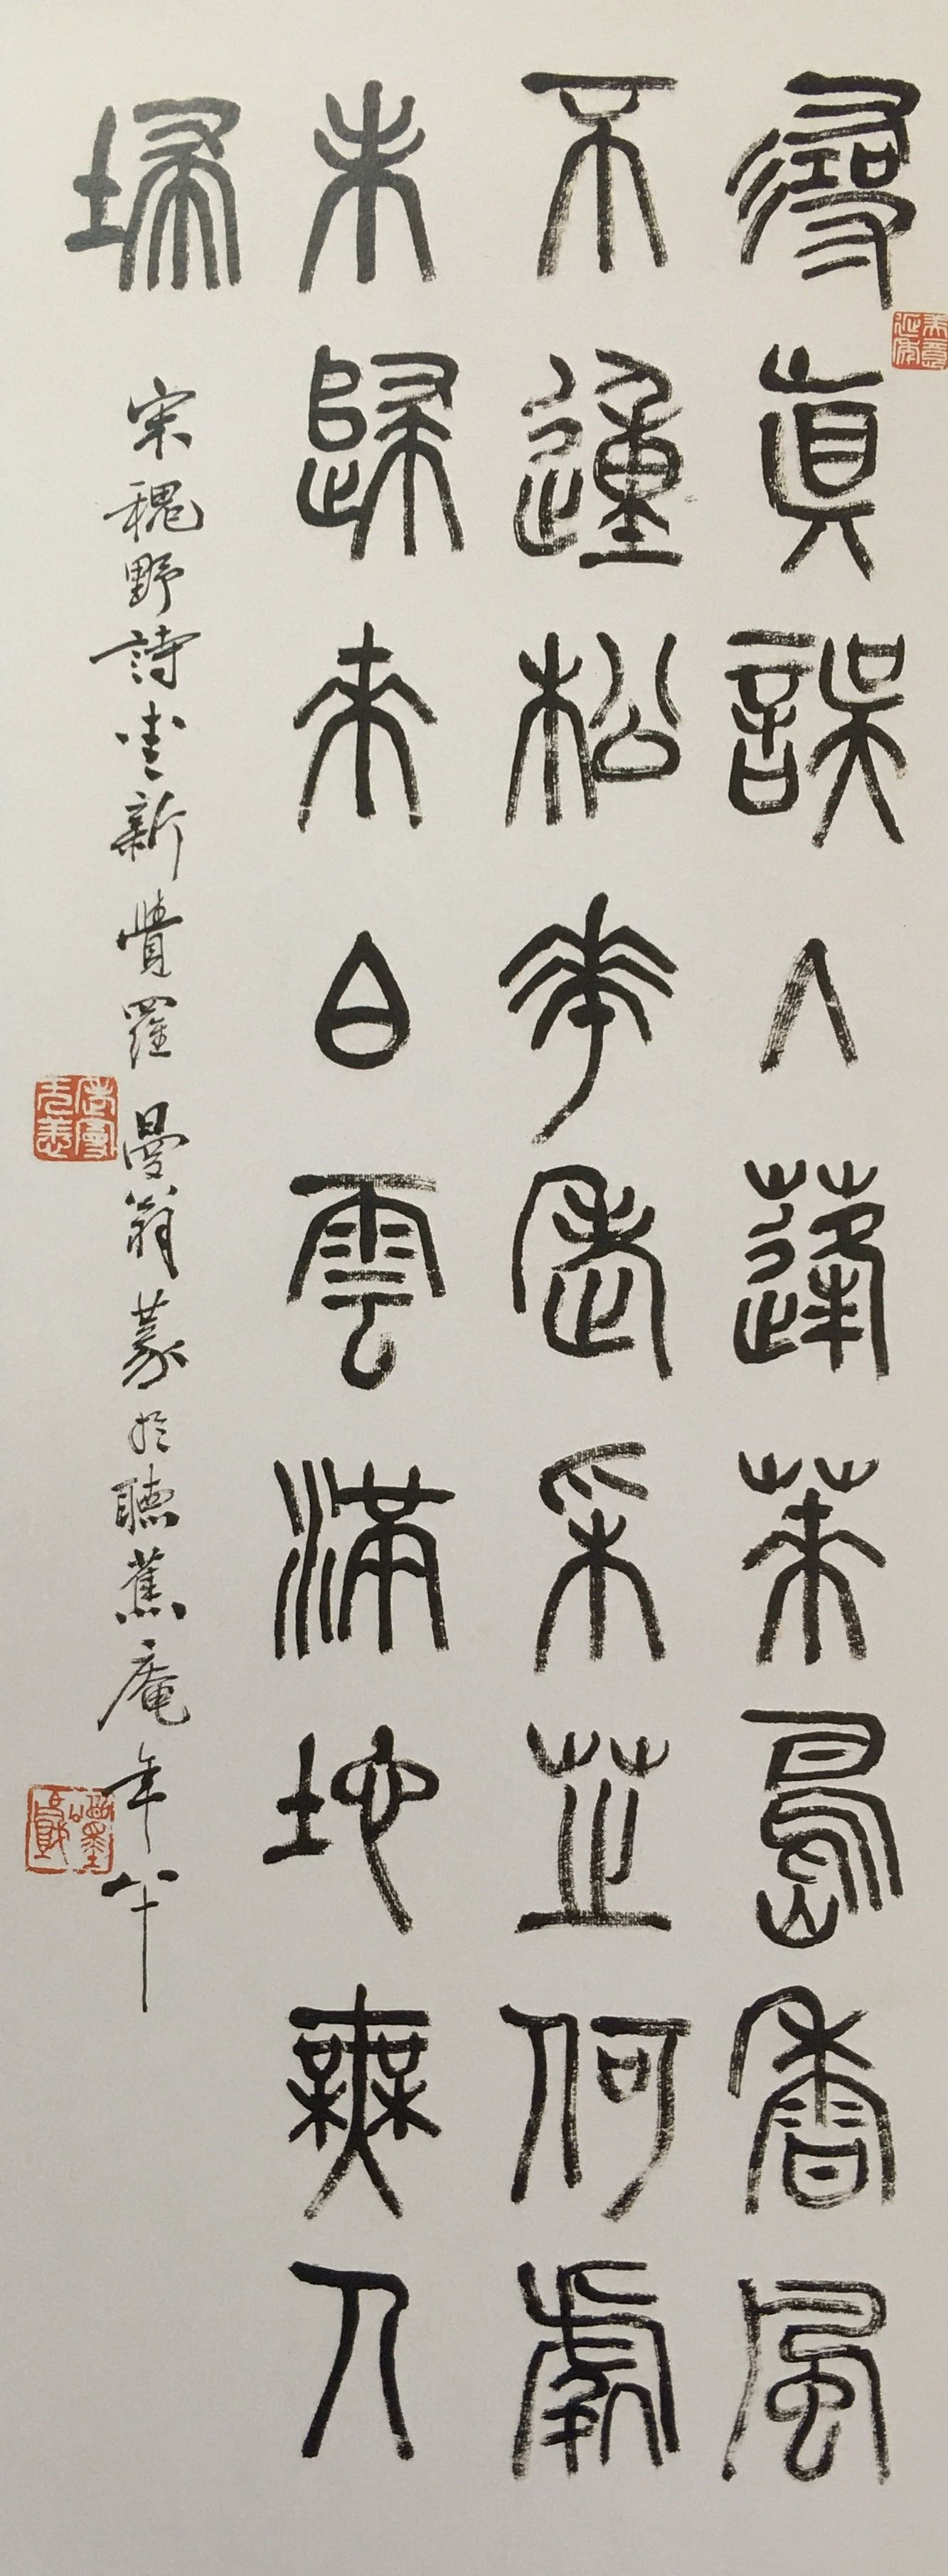 尋眞誤入蓬萊島香風
不動松花老采芝何處
未歸來白雲滿地無人
埽
宋魏野詩愛新覺羅曼翁篆於聽蕉庵年八十